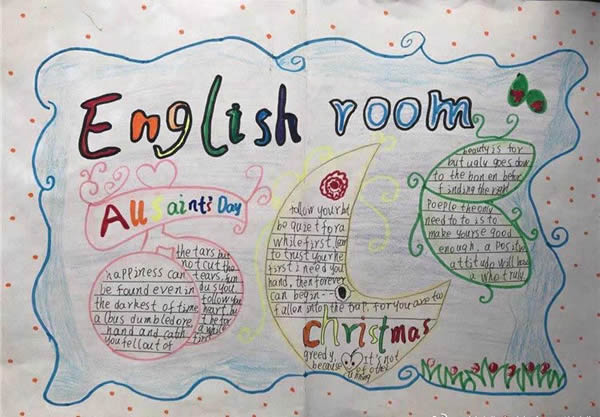 English room
All Saint's Day
happiness can
be found even in
the darkest of time
albus dumbledore
hand and catch
you fell out of
the tars but
not cut the
tears,
follow you
follow your
be quiet for a
while first
to trust your he
first i need you
hand, then forever
can begin--
fallen into the trap. for you are too
christmas
greedy, it's not
because of other
beauty is for
but ugly goes down
to the bon en befor
finding the right
poeple the only
need to to is to
make yourse good
enough, a positive
attitudo will have
who truly